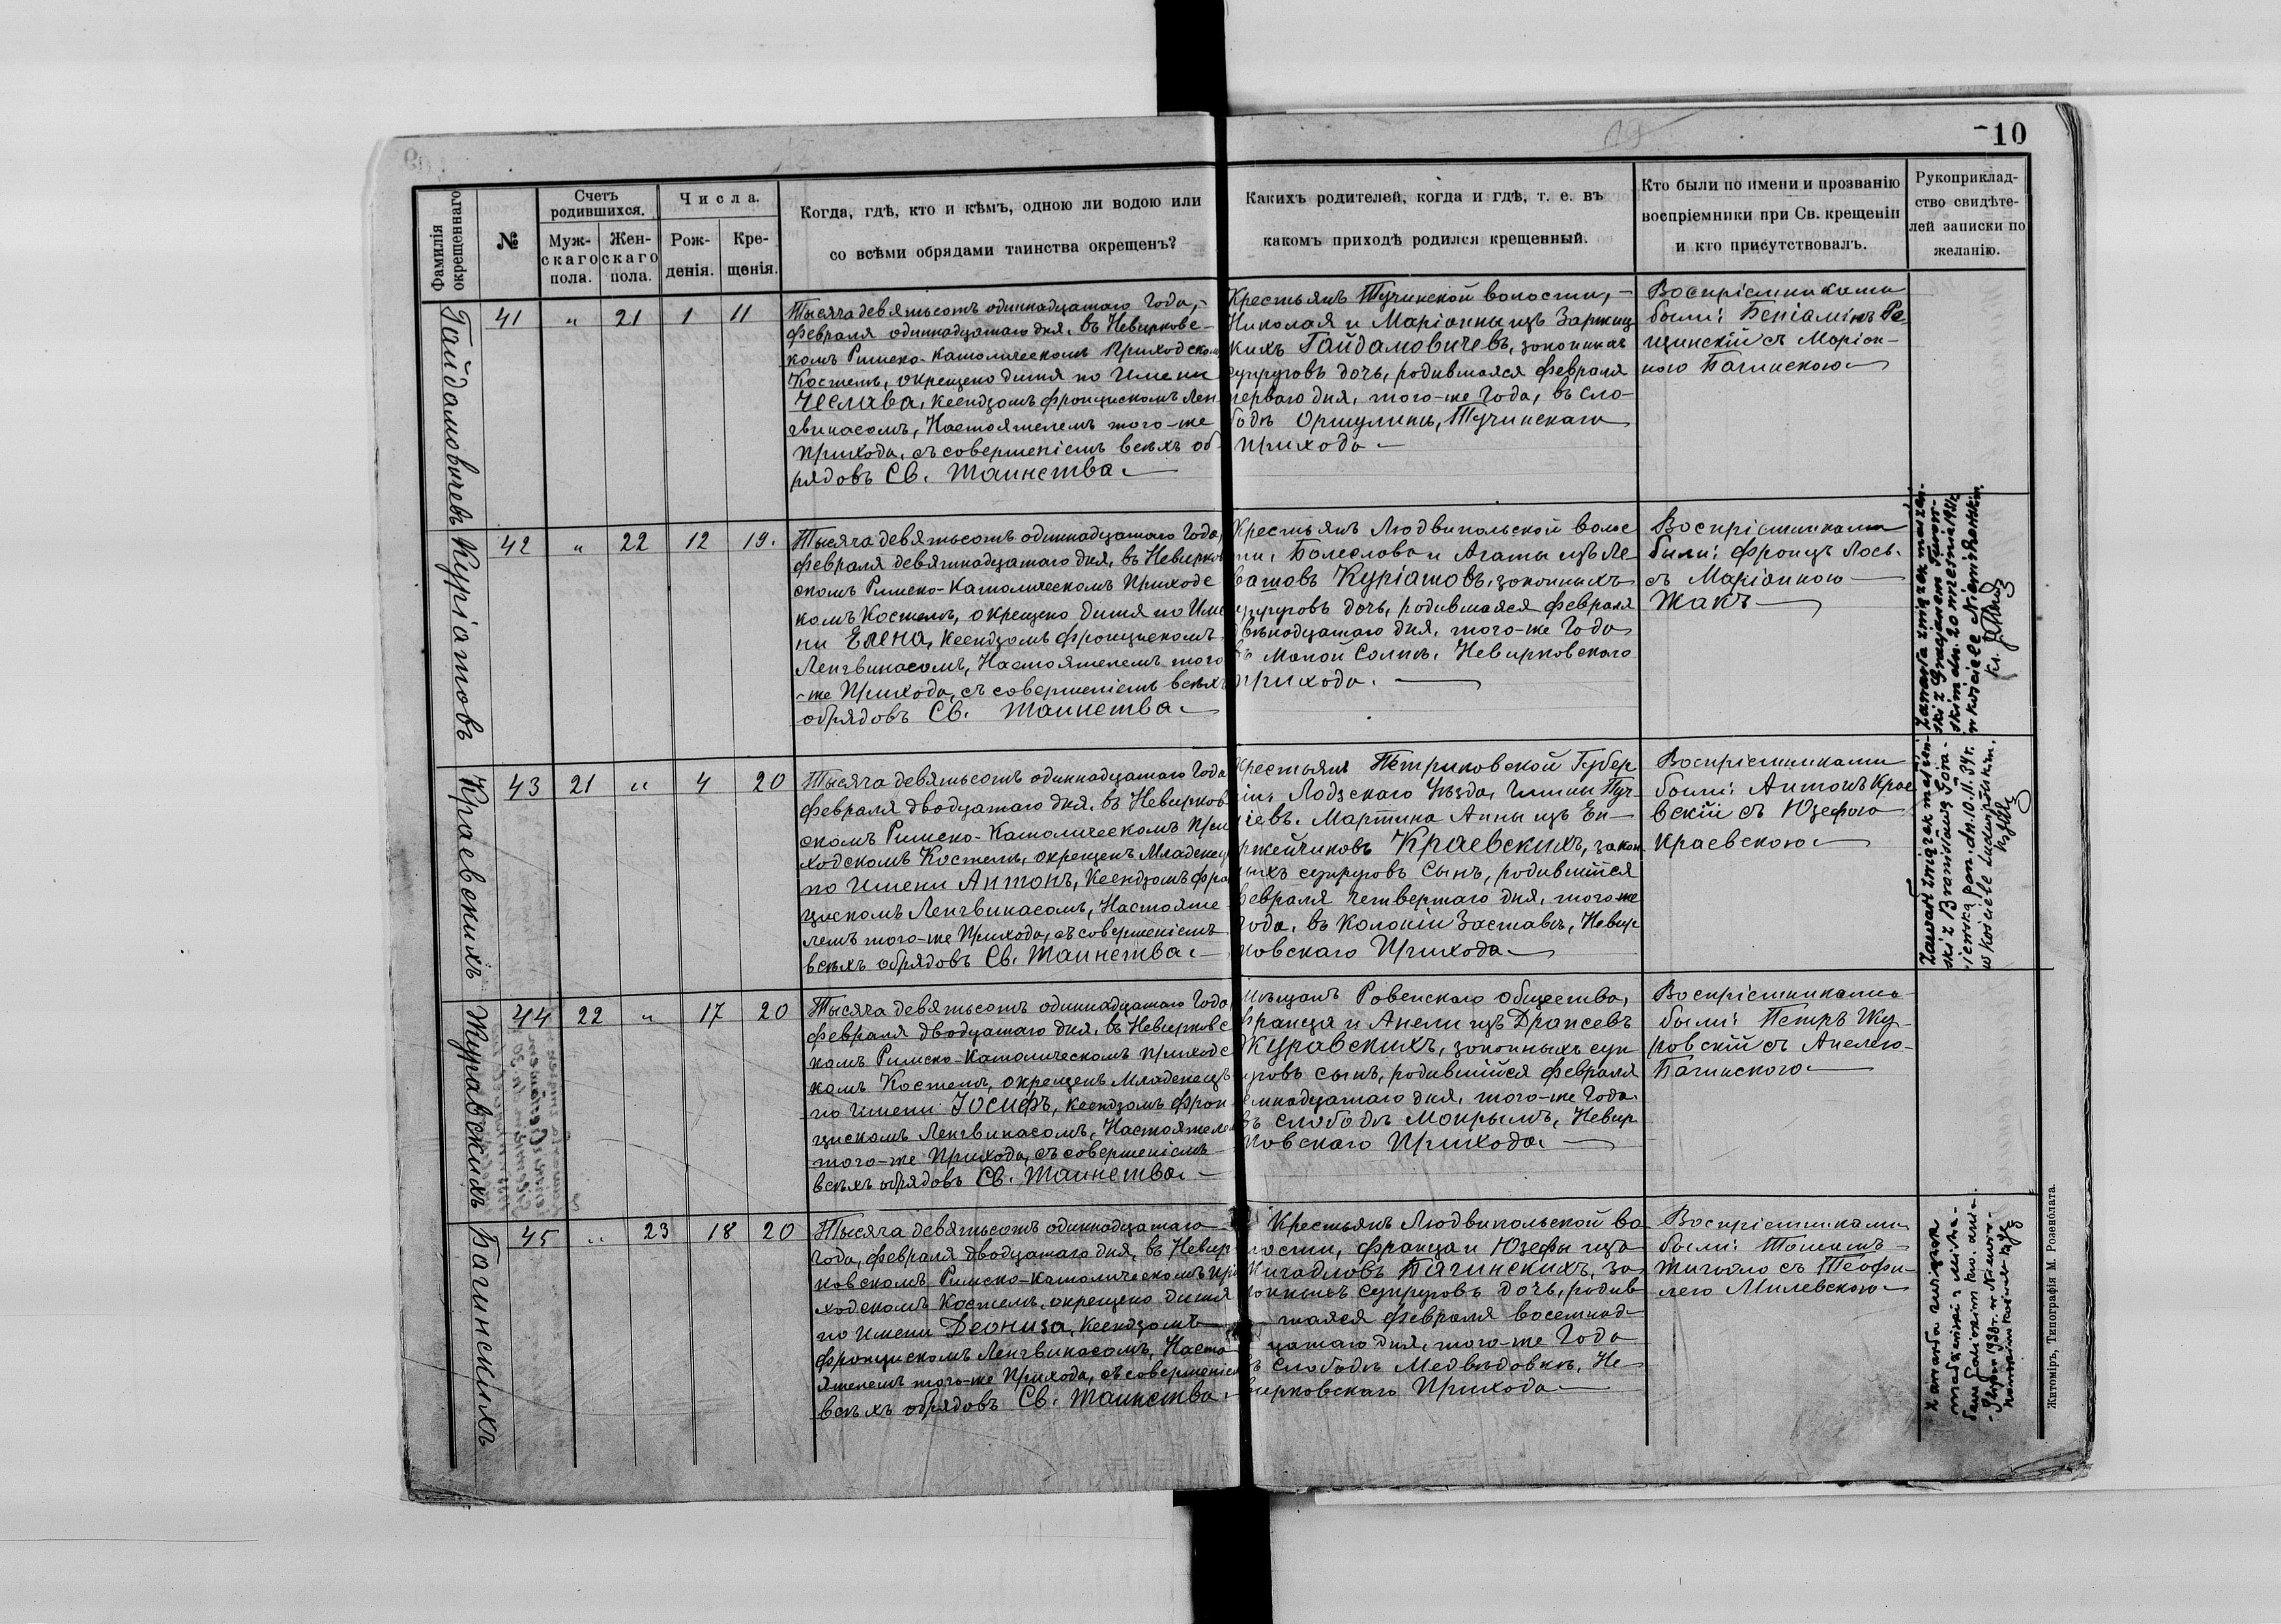 10
Фамилія окрещеннаго
№
Счетъ родившихся.
Муж-
скаго
пола.
Жен-
скаго
пола.
Числа.
Рож-
денія.
Кре-
щенія.
Когда, гдѣ, кто и кѣмъ, одною ли водою или
со всѣми обрядами таинства окрещенъ?
Какихъ родителей, когда и гдѣ, т. е. въ
какомъ приходѣ родился крещенный.
Кто были по имени и прозванію
воспріемники при Св. крещеніи
и кто присутствовалъ.
Рукоприклад-
ство свидѣте-
лей записки по
желанію.
Гайдамовичевъ
41 " 21 1 11
Тысяча девятьсотъ одиннадцатаго Года,
Февраля одиннадцатаго дня, въ Невирковс-
комъ Римско-Католическомъ Приходском
Костелѣ, окрещено дитя по Имени
Чеслава, Ксендзомъ Францискомъ Лен-
гвинасомъ, Настоятелемъ того-же
Прихода, съ совершеніемъ всѣхъ об-
рядовъ Св. Таинства.
Крестьянъ Тучинской волости,
Николая и Маріанны изъ Заржиц-
кихъ Гайдамовичевъ, законныхъ
супруговъ дочь, родившаяся Февраля
перваго дня, того-же Года, въ Сло-
бодѣ Оршулинѣ, Тучинскаго
Прихода
Воспріемниками
были: Беніамінъ Ре-
щинскій съ Маріан-
ною Багинскою
Куріатовъ
42 " 22 12 19.
Тысяча девятьсотъ одиннадцатаго Года,
Февраля девятнадцатаго дня, въ Невирков
скомъ Римско-Католическомъ Приходс
комъ Костелѣ, окрещено дитя по Име
ни Елена, Ксендзомъ Францискомъ
Ленгвинасомъ, Настоятелемъ того
-же Прихода, съ совершеніемъ всѣхъ
обрядовъ Св. Таинства.
Крестьянъ Людвипольской волос
ти, Болеслава и Агаты изъ Ле-
ватовъ Куріатовъ, законныхъ
супруговъ дочь, родившаяся Февраля
двѣнадцатаго дня, того-же Года
въ Малой Солпѣ, Невирковского
Прихода.
Воспріемниками
были: Францъ Лось
съ Маріанною
Жакъ
Zawarła związek małżeń-
ski z Grajanem Turow-
skim dn. 20 września 1931r.
w kościele Niewirkowskim.
Краевскихъ
43 21 " 4 20
Тысяча девятьсотъ одиннадцатаго Года
Февраля двадцатаго дня, въ Невирков
скомъ Римско-Католическомъ При
ходскомъ Костелѣ, окрещенъ Младенец
по Имени Антонъ, Ксендзомъ Фран
цискомъ Ленгвинасомъ, Настояте
лемъ того-же Прихода, съ совершеніемъ
всѣхъ обрядовъ Св. Таинства.
Крестьянъ Петриковской Губер
ніи, Лодзскаго Уѣзда, Гмины Пуч-
ніевъ, Мартина Анны изъ Ен-
држейчиковъ Краевскихъ, закон
ныхъ супруговъ Сынъ, родившійся
Февраля четвертаго дня, того-же
Года, въ Колоніи Заставье, Невир
ковскаго Прихода
Воспріемниками
были: Антонъ Крае
вскій съ Юзефою
Краевскою
Zawarł związek małżeń-
ski z Bronisławą Góra-
w kościele Ludwipolskim.
Журавскихъ
44 22 " 17 20
Тысяча девятьсотъ одиннадцатаго Года,
Февраля двадцатаго дня, въ Невирковс
комъ Римско-Католическомъ Приходс
комъ Костелѣ, окрещенъ Младенецъ
по Имени Іосифъ, Ксендзомъ Фран
цискомъ Ленгвинасомъ, Настоятелем
того-же Прихода, съ совершеніемъ
всѣхъ обрядовъ Св. Таинства.
Мѣщанъ Ровенскаго Общества,
Франца и Анели изъ Драпсевъ
Журавскихъ, законныхъ суп
руговъ сынъ, родившійся Февраля
семнадцатаго дня, того-же Года
въ Слободѣ Мокрымъ, Невир
ковскаго Прихода.
Воспріемниками
были: Петръ Жу-
ровскій съ Анелею
Багинскою
Багинскихъ
45 " 23 18 20
Тысяча девятьсотъ одиннадцатаго
Года, Февраля двадцатаго дня, въ Невир
ковскомъ Римско-Католическомъ При
ходскомъ Костелѣ, окрещено дитя
по Имени Деониза, Ксендзомъ
Францискомъ Ленгвинасомъ, Насто
ятелемъ того-же Прихода, съ совершеніем
всѣхъ обрядовъ Св. Таинства
Крестьянъ Людвипольской во
лости, Франца и Юзефы изъ
Жигадловъ Багинскихъ, за
конныхъ супруговъ дочь, родив
шаяся Февраля восемнад-
цатаго дня, того-же Года
въ Слободѣ Медвѣдовкѣ, Не
вирковскаго Прихода
Воспріемниками
были:
съ Теофи
лею Милевскою
Zawarła związek
Житоміръ, Типографія М. Розенблата.